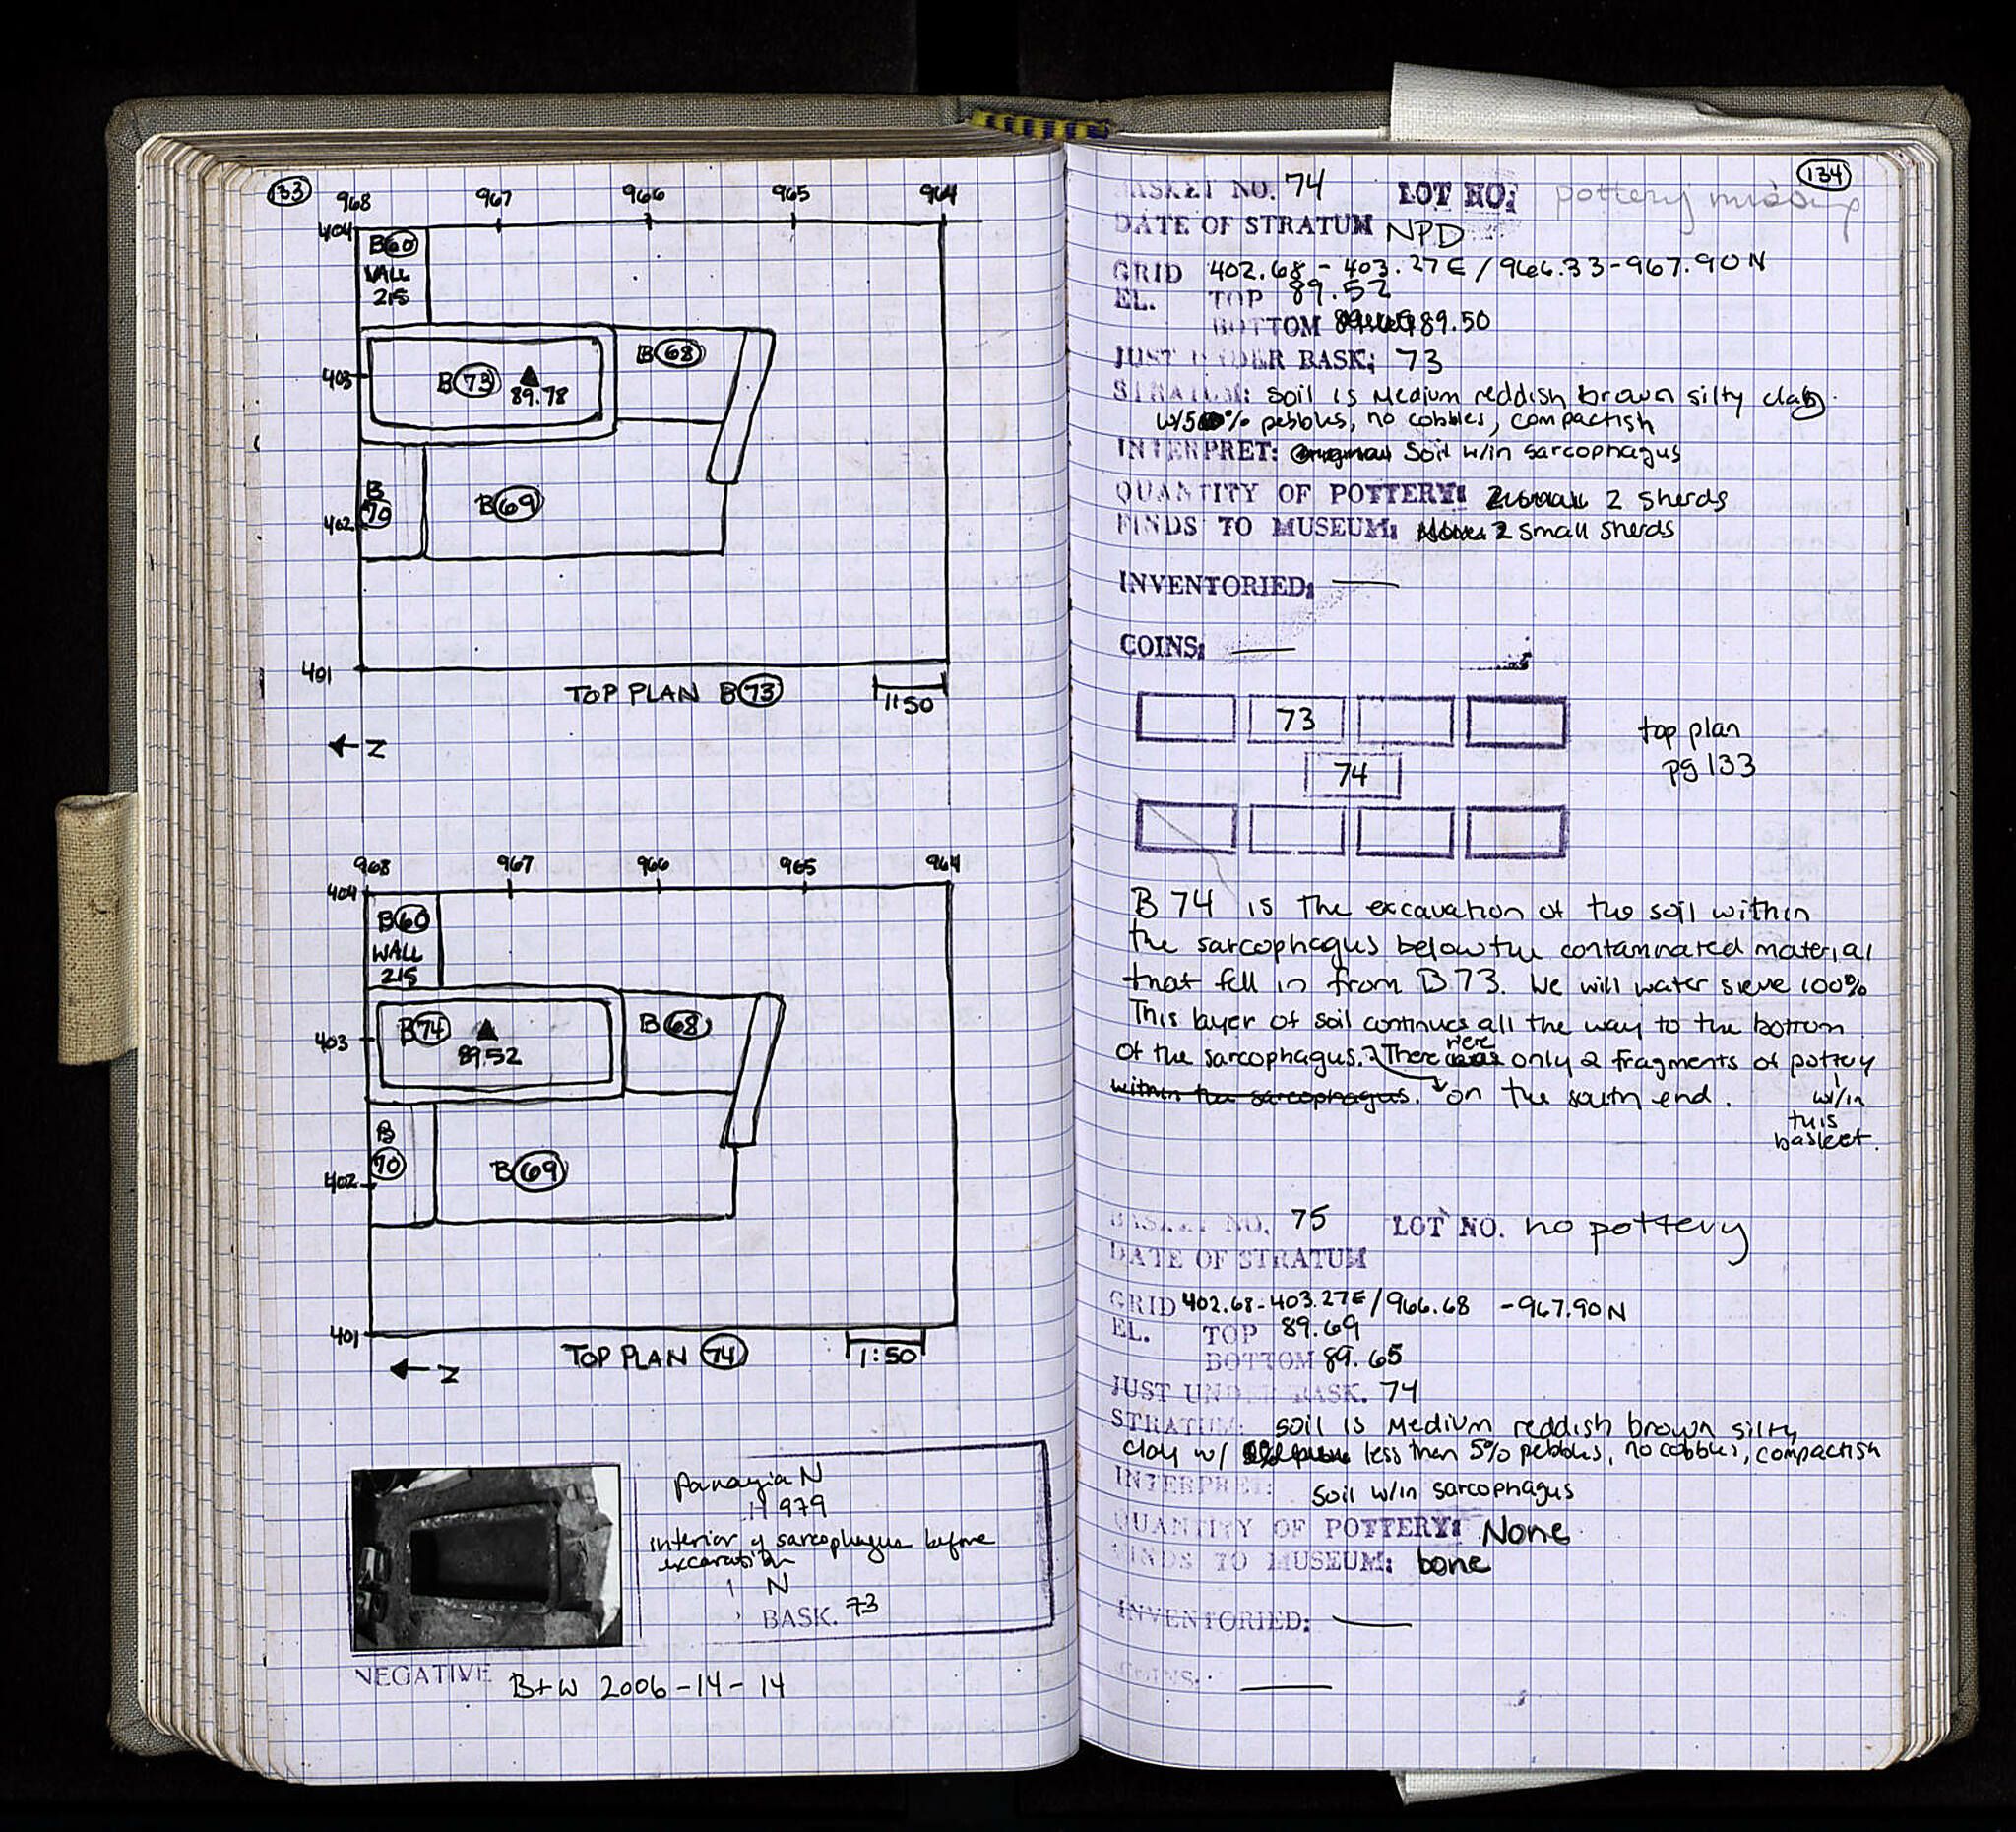 133
968 967 966 965 964
404
B60
WALL
215
B68
403
B73 89.78
B
70
402
B69
401
TOP PLAN B73
1:50
← N
968 967 966 965 964
404
B60
WALL
215
B74
89.52
B68
403
B
70
402
B69
401
TOP PLAN 74
1:50
← N
Panayia N
H 979
interior of sarcophagus before
excavation
N
BASK. 73
NEGATIVE B+W 2006-14-14
134
BASKET NO. 74 LOT NO: pottery missing
DATE OF STRATUM NPD
GRID 402.68 - 403.27E / 966.33-967.90N
EL. TOP 89.52
BOTTOM 89.50
JUST UNDER BASK: 73
STRATUM: soil is Medium reddish brown silty clay.
w/5% pebbles, no cobbles, compactish
INTERPRET: Soil w/in sarcophagus
QUANTITY OF POTTERY: 2 sherds
FINDS TO MUSEUM: 2 small sherds
INVENTORIED: —
COINS: —
73
74
top plan
pg 133
B 74 is the excavation of the soil within
the sarcophagus below the contaminated material
that fell in from B 73. We will water sieve 100%
This layer of soil continues all the way to the bottom
of the sarcophagus. There were only 2 fragments of pottery
within the sarcophagus. on the south end. w/in
this
basket.
BASKET NO. 75 LOT NO. no pottery
DATE OF STRATUM
GRID 402.68-403.27E/966.68 -967.90N
EL. TOP 89.69
BOTTOM 89.65
JUST UNDER BASK. 74
STRATUM: soil is Medium reddish brown silty
clay w/ less than 5% pebbles, no cobbles, compactish
INTERPRET: Soil w/in sarcophagus
QUANTITY OF POTTERY: None
FINDS TO MUSEUM: bone
INVENTORIED: —
COINS: —